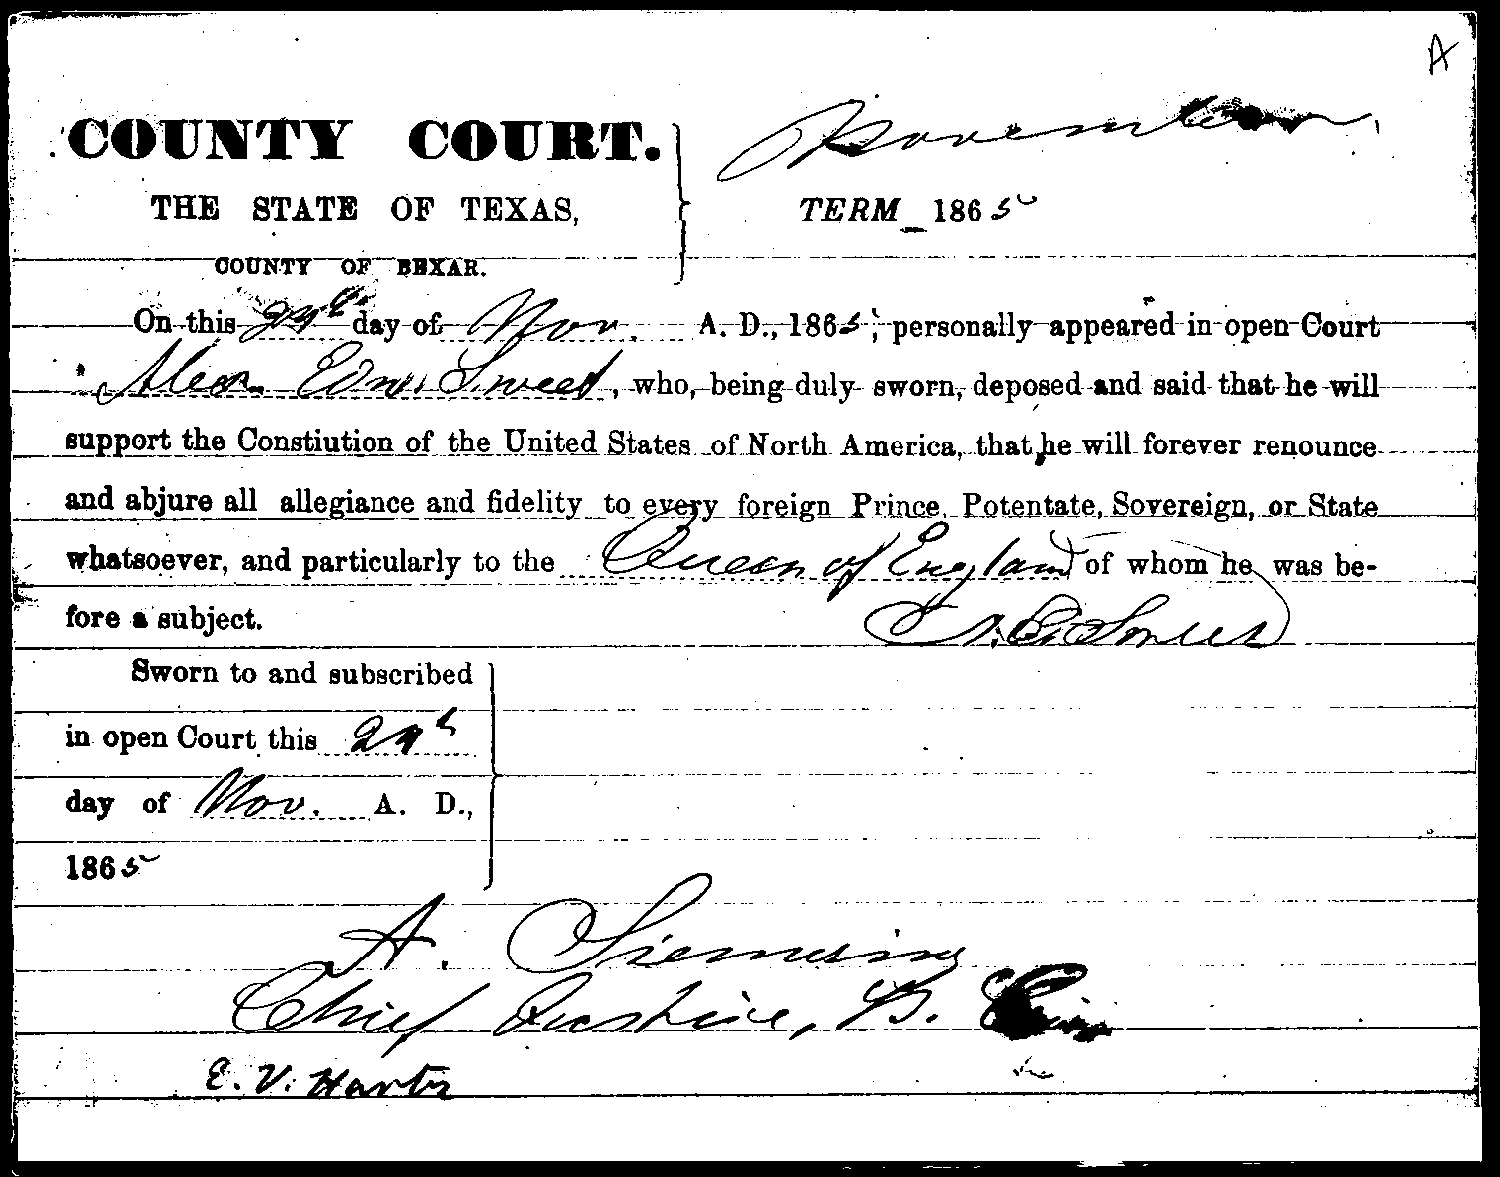 A
COUNTY COURT. November
THE STATE OF TEXAS, TERM 1865
COUNTY OF BEXAR.
On this 29th day of Nov. A. D., 1865, personally appeared in open Court
Alex. Edw. Sweet, who, being duly sworn, deposed and said that he will
support the Constiution of the United States of North America, that he will forever renounce
and abjure all allegiance and fidelity to every foreign Prince, Potentate, Sovereign, or State
whatsoever, and particularly to the Queen of England of whom he was be-
fore a subject.
Sworn to and subscribed
in open Court this 29th
day of Nov. A. D.,
1865
A. Siemering
Chief Justice, B.
E. V. Hartz